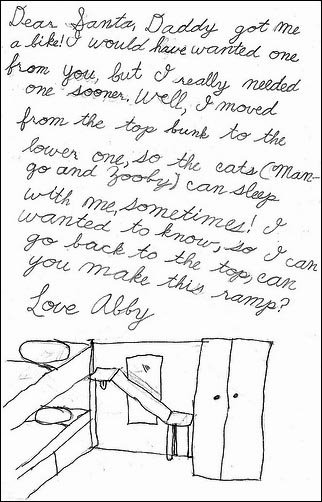 Dear Santa, Daddy got me
a bike! I would have wanted one
from you, but I really needed
one sooner. Well, I moved
from the top bunk to the
lower one, so the cats (Man-
go and Zooby) can sleep
with me, sometimes! I
wanted to know, so I can
go back to the top, can
you make this ramp?
Love Abby